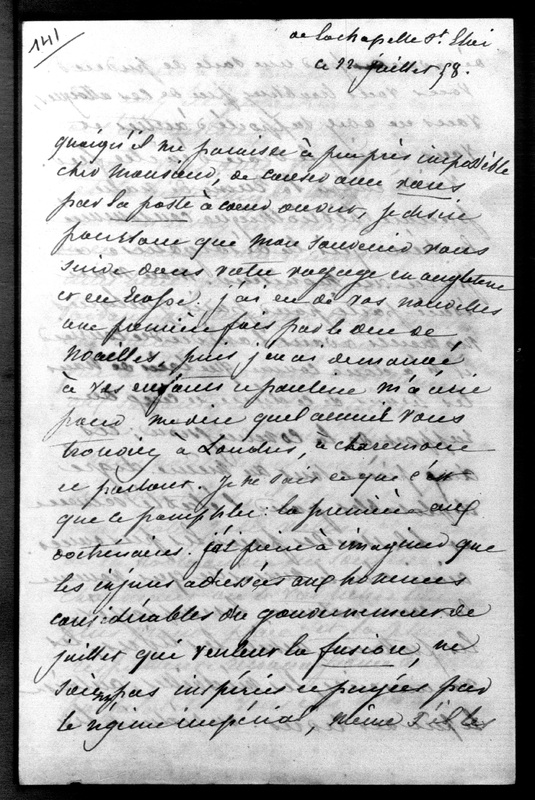 141
de la chapelle St. Eloi
ce 22 juillet 58.
quoiqu'il me paroisse à peu près impossible
cher Monsieur, de causer avec vous
par la poste à coeur ouvert, je desire
pourtant que mon souvenir vous
suive dans votre voyage en angleterre
et en Ecosse. j'ai eu de vos nouvelles
une première fois par le duc de
Noailles, puis j'en ai demandé
à vos enfants et pauline m'a écrit
pour me dire quel accueil vous
trouviez à Londres, à claremont
et partout. Je ne sais ce que c'est
que ce pamphlet: la première aux
doctrinaires. j'ai peine à imaginer que
les injures adressées aux hommes
considérables du gouvernement de
juillet qui veulent la fusion, ne
soient pas inspirées et payées par
le régime impérial, même s'il les